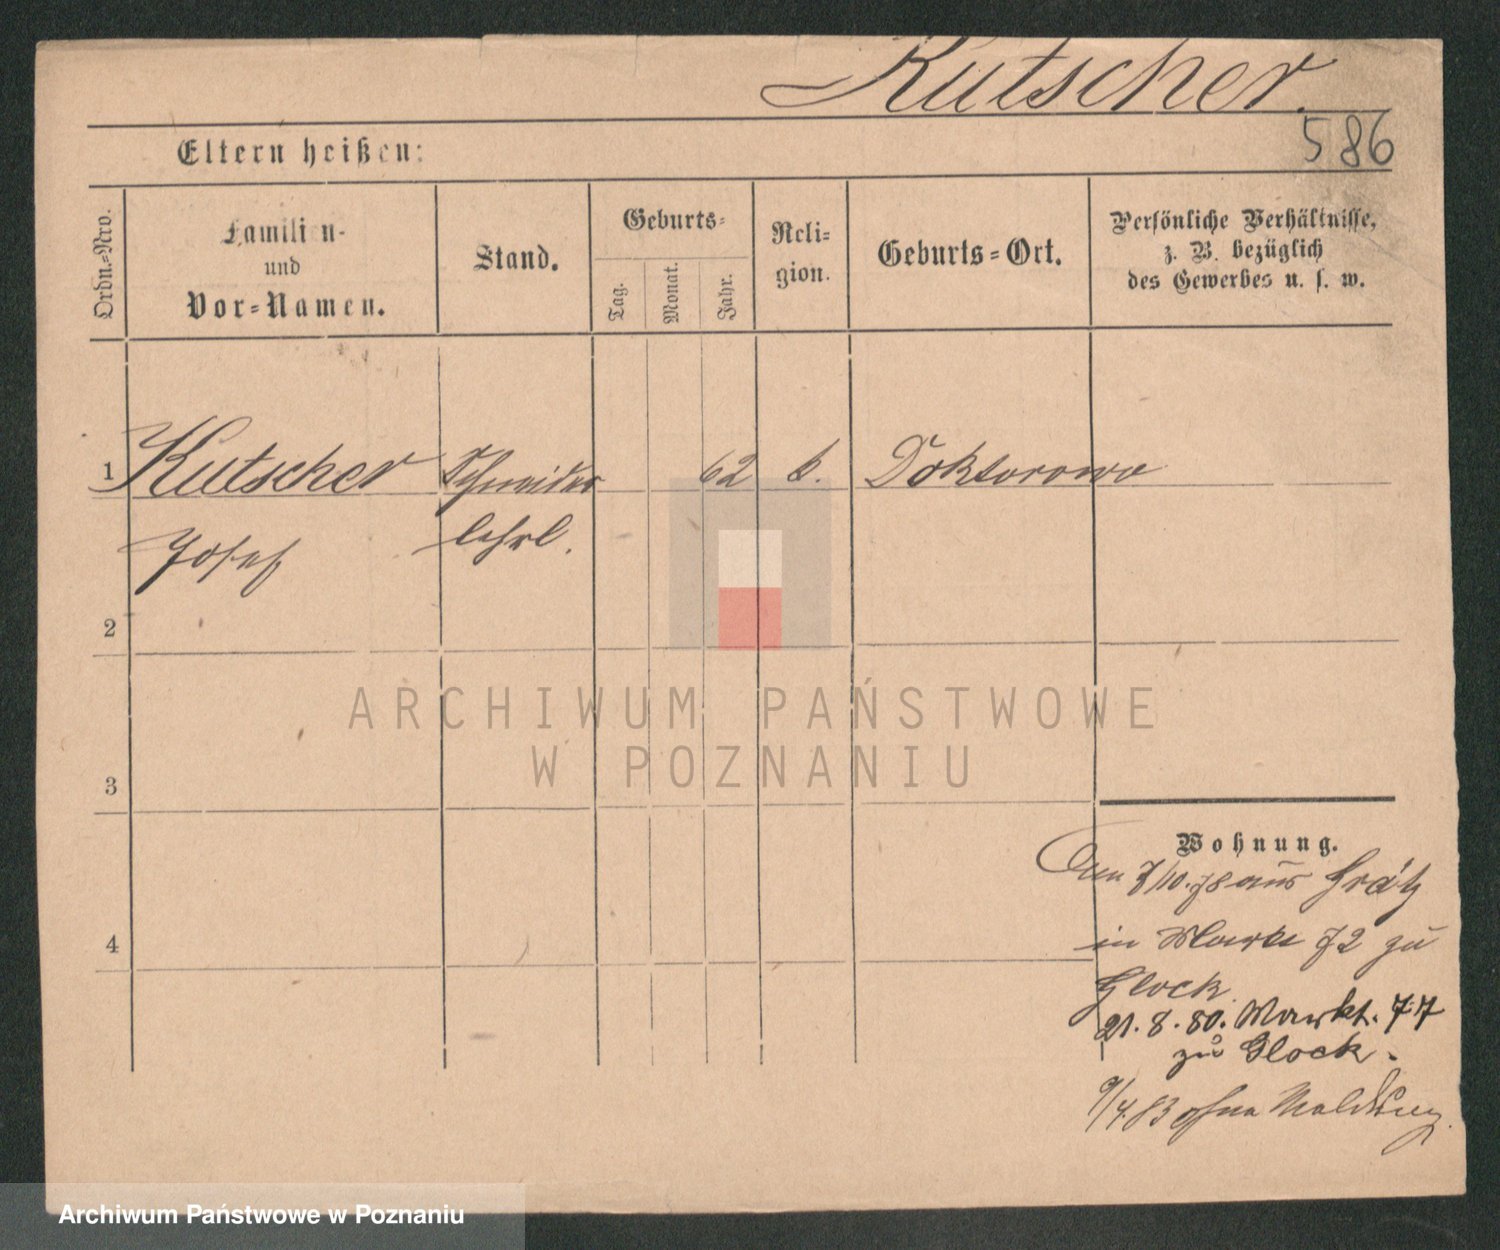 Kutscher.
586
Eltern heißen:
Ordn.-Nro.
Familien-
und
Vor-Namen.
Stand.
Geburts-
Tag.
Monat.
Jahr.
Reli-
gion.
Geburts-Ort.
Persönliche Verhältnisse,
z. B. bezüglich
des Gewerbes u. s. w.
1 Kutscher Schneider 62 k. Doktorowo
Josef lehrl.
2
3
4
Wohnung.
Am 7/10.78 aus Grätz
in Markt 72 zu
Glock.
21.8.80. Markt. 77
zu Glock.
9/4.83 ohne Meldung.
ARCHIWUM PAŃSTWOWE
W POZNANIU
Archiwum Państwowe w Poznaniu